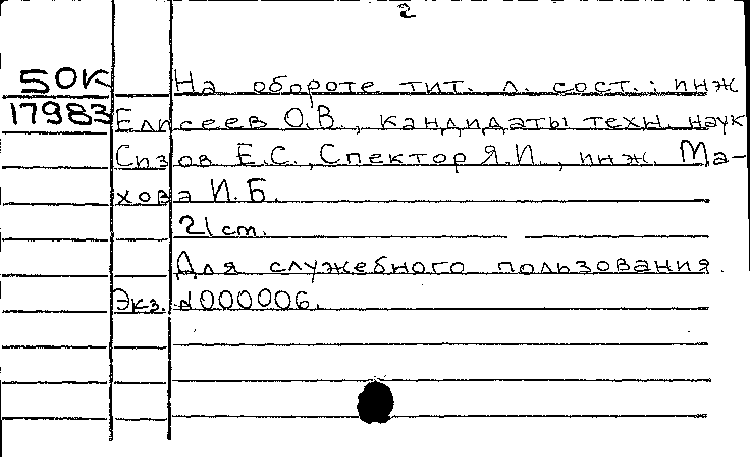 2
50К На обороте тит. л. сост.: инж
17983 Елисеев О.В., кандидаты техн. наук
Сизов Е.С., Спектор Я.И., инж. Ма-
хова И.Б.
21 cm.
Для служебного пользования.
Экз. №000006.